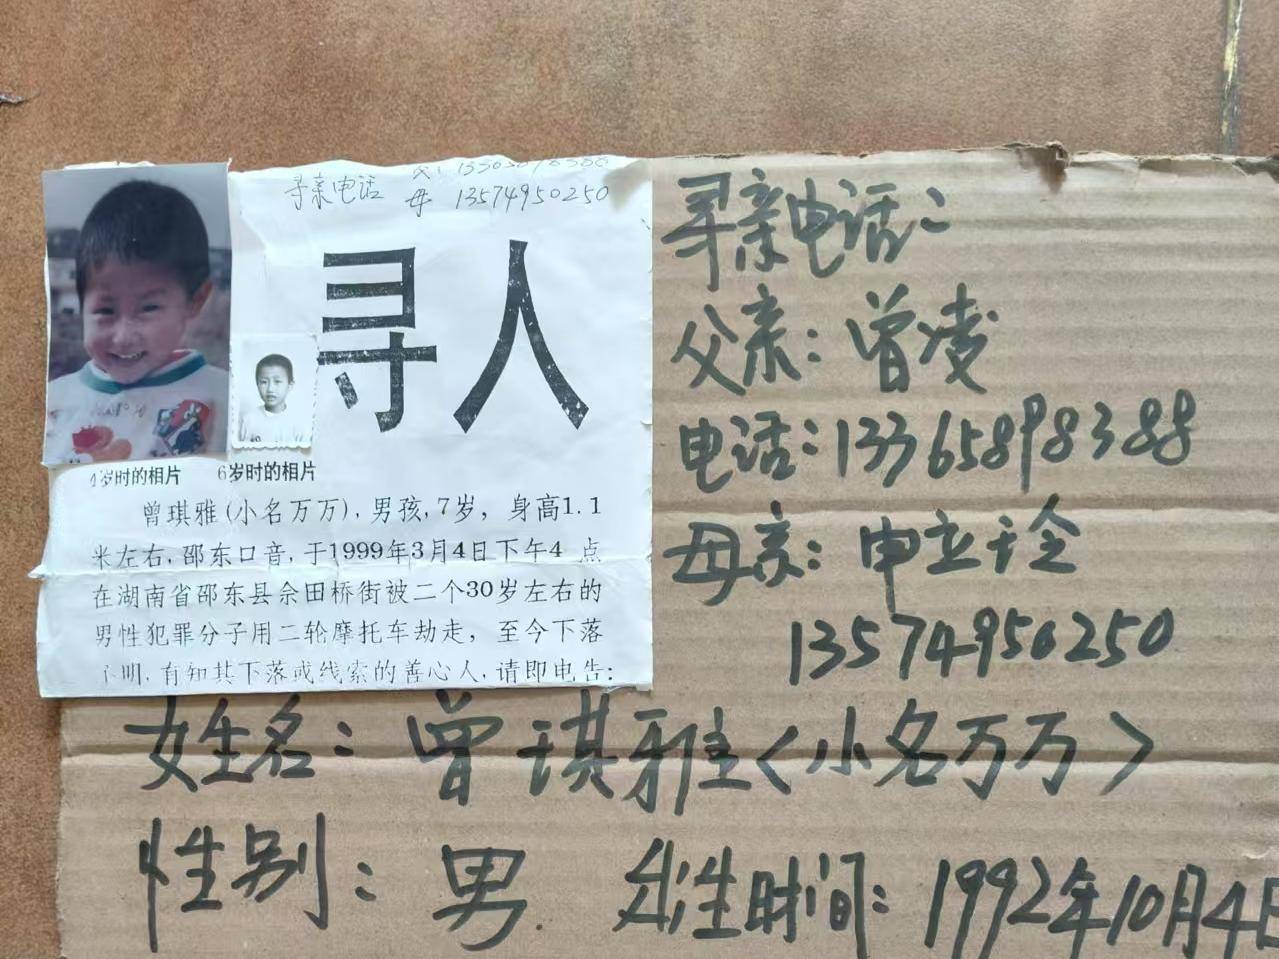 寻亲电话
母 13574950250
寻人
4岁时的相片 6岁时的相片
曾琪雅(小名万万),男孩,7岁，身高1.1
米左右,邵东口音,于1999年3月4日下午4 点
在湖南省邵东县佘田桥街被二个30岁左右的
男性犯罪分子用二轮摩托车劫走，至今下落
不明,有知其下落或线索的善心人,请即电告:
寻亲电话:
父亲:曾凌
电话:13365898388
母亲:申立
13574950250
姓名:曾琪雅<小名万万>
性别:男. 出生时间:1992年10月4日